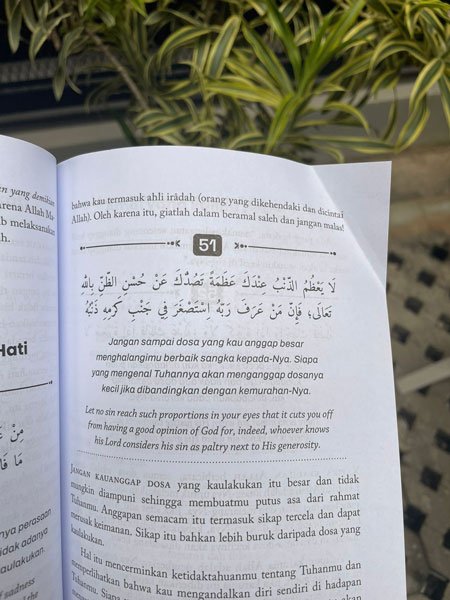 en yang demikian
arena Allah Ma
b melaksanakan
h.
Hati
مِنْ
مَا فَا
nya perasaan
tidak adanya
lakukan.
of sadness
bahwa kau termasuk ahli irâdah (orang yang dikehendaki dan dicintai
Allah). Oleh karena itu, giatlah dalam beramal saleh dan jangan malas!
51
لَا يَعْظُمِ الذَّنْبُ عِنْدَكَ عَظَمَةً تَصُدُّكَ عَنْ حُسْنِ الظَّنِّ بِاللهِ
تَعَالَى، فَإِنَّ مَنْ عَرَفَ رَبَّهُ اسْتَصْغَرَ فِي جَنْبِ كَرَمِهِ ذَنْبَهُ
Jangan sampai dosa yang kau anggap besar
menghalangimu berbaik sangka kepada-Nya. Siapa
yang mengenal Tuhannya akan menganggap dosanya
kecil jika dibandingkan dengan kemurahan-Nya.
Let no sin reach such proportions in your eyes that it cuts you off
from having a good opinion of God for, indeed, whoever knows
his Lord considers his sin as paltry next to His generosity.
JANGAN KAUANGGAP DOSA yang kaulakukan itu besar dan tidak
mungkin diampuni sehingga membuatmu putus asa dari rahmat
Tuhanmu. Anggapan semacam itu termasuk sikap tercela dan dapat
merusak keimanan. Sikap itu bahkan lebih buruk daripada dosa yang
kaulakukan.
Hal itu mencerminkan ketidaktahuanmu tentang Tuhanmu dan
memperlihatkan bahwa kau mengandalkan diri sendiri di hadapan
Tuhanmu. Siapa